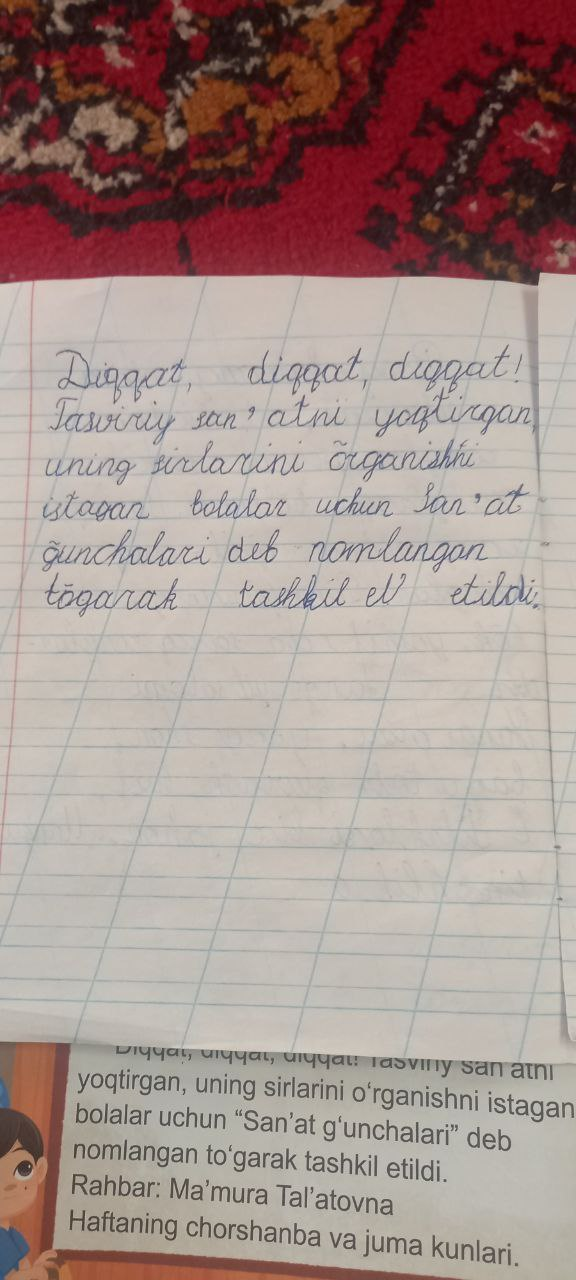 Diqqat, diqqat, diqqat!
Tasviriy san'atni yoqtirgan,
uning sirlarini õrganishni
istagan bolalar uchun San'at
g̃unchalari deb nomlangan
tõgarak tashkil et etildi.
Diqqat, diqqat, diqqat! Tasviriy san'atni
yoqtirgan, uning sirlarini o‘rganishni istagan
bolalar uchun “San’at g‘unchalari” deb
nomlangan to‘garak tashkil etildi.
Rahbar: Ma’mura Tal’atovna
Haftaning chorshanba va juma kunlari.